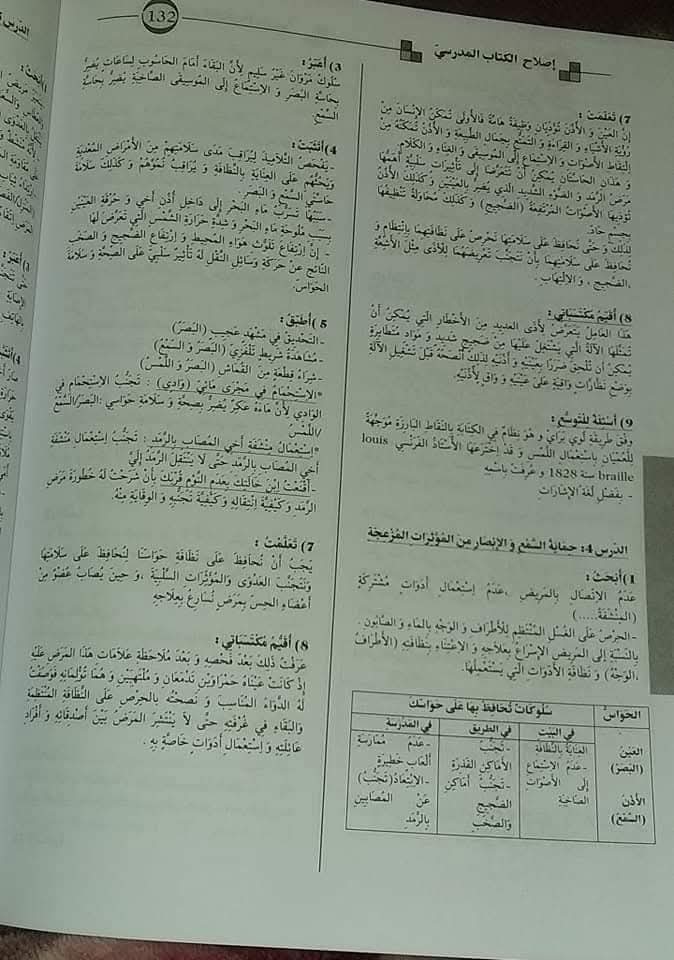 132
إصلاح الكتاب المدرسي
7) تَعَلَّمْتُ :
إنَّ العَيْنَ وَ الأُذُنَ تُؤَدِّيَانِ وَظِيفَةً هَامَّةً فَالأُولَى تُمَكِّنُ الإِنْسَانَ مِنْ
رُؤْيَةِ الأَشْيَاءِ وَ القِرَاءَةِ وَ التَّمَتُّعِ بِجَمَالِ الطَّبِيعَةِ وَ الأُذُنُ تُمَكِّنُهُ مِنْ
إِلْتِقَاطِ الأَصْوَاتِ وَ الإِسْتِمَاعِ إِلَى المُوسِيقَى وَ الغِنَاءِ وَ الكَلَامِ.
وَ هَذَانِ الحَاسَّتَانِ يُمْكِنُ أَنْ تَتَعَرَّضَا إِلَى تَأْثِيرَاتٍ سَلْبِيَّةٍ أَهَمُّهَا
مَرَضُ الرَّمَدِ وَ الضَّوْءِ الشَّدِيدِ الَّذِي يُضِرُّ بِالعَيْنَيْنِ وَ كَذَلِكَ الأُذُنُ
تُؤْذِيهَا الأَصْوَاتُ المُرْتَفِعَةُ (الضَّجِيجُ) وَ كَذَلِكَ مُحَاوَلَةُ تَنْظِيفِهَا
بِجِسْمٍ حَادٍّ.
وَ لِذَلِكَ وَ حَتَّى نُحَافِظَ عَلَى سَلَامَتِهَا نَحْرِصُ عَلَى نَظَافَتِهِمَا بِانْتِظَامٍ وَ
نُحَافِظُ عَلَى سَلَامَتِهِمَا بِأَنْ نَتَجَنَّبَ تَعْرِيضَهُمَا لِلأَذَى مِثْلَ الأَشِعَّةِ
،الضَّجِيجِ ، وَ الالْتِهَابِ.
8) أُقَيِّمُ مُكْتَسَبَاتِي :
هَذَا العَامِلُ يَتَعَرَّضُ لِأَذَى العَدِيدِ مِنَ الأَخْطَارِ الَّتِي يُمْكِنُ أَنْ
تُمَثِّلَهَا الآلَةُ الَّتِي يَشْتَغِلُ عَلَيْهَا مِنْ ضَجِيجٍ شَدِيدٍ وَ مَوَادَّ مُتَطَايِرَةٍ
يُمْكِنُ أَنْ تُلْحِقَ ضَرَرًا بِعَيْنَيْهِ وَ أُذُنَيْهِ لِذَلِكَ أَنْصَحُهُ قَبْلَ تَشْغِيلِ الآلَةِ
بِوَضْعِ نَظَّارَاتٍ وَاقِيَةٍ عَلَى عَيْنَيْهِ وَ وَاقٍ لِأُذُنَيْهِ.
9) أَسْئِلَةٌ لِلتَّوَسُّعِ :
وِفْقَ طَرِيقَةِ لُوِي بْرَايْ وَ هُوَ نِظَامٌ فِي الكِتَابَةِ بِالنِّقَاطِ البَارِزَةِ مُوَجَّهَةٌ
لِلْعُمْيَانِ بِاسْتِعْمَالِ اللَّمْسِ وَ قَدْ اِخْتَرَعَهَا الأُسْتَاذُ الفَرَنْسِي louis
braille سنة 1828 وَ عُرِفَتْ بِاسْمِهِ
- بِفَضْلِ لُغَةِ الإِشَارَاتِ
الدرس 4: حِمَايَةُ السَّمْعِ وَ الإِبْصَارِ مِنَ المُؤَثِّرَاتِ المُزْعِجَةِ
1) أَبْحَثُ :
عَدَمُ الإِتِّصَالِ بِالمَرِيضِ ،عَدَمُ إِسْتِعْمَالِ أَدَوَاتٍ مُشْتَرَكَةٍ
(المِنْشَفَةُ.....)
-الحِرْصُ عَلَى الغَسْلِ المُنْتَظِمِ لِلأَطْرَافِ وَ الوَجْهِ بِالمَاءِ وَ الصَّابُونِ .
بِالنِّسْبَةِ إِلَى المَرِيضِ الإِسْرَاعُ بِعِلَاجِهِ وَ الإِعْتِنَاءِ بِنَظَافَتِهِ (الأَطْرَافُ
،الوَجْهُ) وَ نَظَافَةِ الأَدَوَاتِ الَّتِي يَسْتَعْمِلُهَا.
الحَوَاسُّ
سُلُوكَاتٌ تُحَافِظُ بِهَا عَلَى حَوَاسِّكَ
في البَيْتِ
في الطريق
في المَدْرَسَةِ
العَيْنُ
(البَصَرُ)
الأُذُنُ
(السَّمْعُ)
العِنَايَةُ بِالنَّظَافَةِ
-عَدَمُ الاِسْتِمَاعِ
إِلَى الأَصْوَاتِ
الصَّاخِبَةِ
-تَجَنُّبُ
الأَمَاكِنِ القَذِرَةِ
-تَجَنُّبُ أَمَاكِنِ
الضَّجِيجِ
وَالصَّخَبِ
-عَدَمُ مُمَارَسَةِ
أَلْعَابٍ خَطِيرَةٍ
-الاِبْتِعَادُ (تَجَنُّبُ)
عَنْ المُصَابِينَ
بِالرَّمَدِ
3) أُعَبِّرُ :
سُلُوكُ مَرْوَانَ غَيْرُ سَلِيمٍ لِأَنَّ البَقَاءَ أَمَامَ الحَاسُوبِ لِسَاعَاتٍ يُضِرُّ
بِحَاسَّةِ البَصَرِ وَ الإِسْتِمَاعَ إِلَى المُوسِيقَى الصَّاخِبَةِ يُضِرُّ بِحَاسَّةِ
السَّمْعِ.
4) أَتَثَبَّتُ :
-يَفْحَصُ التَّلَامِيذَ لِيُرَاقِبَ مَدَى سَلَامَتِهِمْ مِنَ الأَمْرَاضِ المُعْدِيَةِ
وَيَحُثُّهُمْ عَلَى العِنَايَةِ بِالنَّظَافَةِ وَ يُرَاقِبُ نُمُوَّهُمْ وَ كَذَلِكَ سَلَامَةَ
حَاسَّتَيِ السَّمْعِ وَ البَصَرِ.
-سَبَبُهَا تَسَرُّبُ مَاءِ البَحْرِ إِلَى دَاخِلِ أُذُنِ أَخِي وَ حُرْقَةِ العَيْنَيْنِ
بِسَبَبِ مُلُوحَةِ مَاءِ البَحْرِ وَ شِدَّةِ حَرَارَةِ الشَّمْسِ الَّتِي تَعَرَّضَ لَهَا
- إِنَّ إِرْتِفَاعَ تَلَوُّثِ هَوَاءِ المُحِيطِ وَ إِرْتِفَاعَ الضَّجِيجِ وَ الصَّخَبِ
النَّاتِجِ عَنْ حَرَكَةِ وَسَائِلِ النَّقْلِ لَهُ تَأْثِيرٌ سَلْبِيٌّ عَلَى الصِّحَّةِ وَ سَلَامَةِ
الحَوَاسِّ.
5) أُطَبِّقُ :
-التَّحْدِيقُ فِي مَشْهَدٍ عَجِيبٍ (البَصَرُ)
- مُشَاهَدَةُ شَرِيطٍ تَلْفَزِيٍّ (البَصَرُ وَ السَّمْعُ)
- شِرَاءُ قِطْعَةٍ مِنَ القُمَاشِ (البَصَرُ وَ اللَّمْسُ)
*الإِسْتِحْمَامُ فِي مَجْرَى مَائِيٍّ (وَادِي) : تَجَنَّبْ الإِسْتِحْمَامَ فِي
الوَادِي لِأَنَّ مَاءَهُ عَكِرٌ يُضِرُّ بِصِحَّةِ وَ سَلَامَةِ حَوَاسِي :البَصَرُ/السَّمْعُ
/اللَّمْسُ
*إِسْتِعْمَالُ مِنْشَفَةِ أَخِي المُصَابِ بِالرَّمَدِ : تَجَنَّبْ إِسْتِعْمَالَ مِنْشَفَةِ
أَخِي المُصَابِ بِالرَّمَدِ حَتَّى لَا يَنْتَقِلَ الرَّمَدُ إِلَيَّ
-أَقْنَعْتُ إِبْنَ خَالَتِكَ بِعَدَمِ النَّوْمِ قُرْبَكَ بِأَنْ شَرَحْتُ لَهُ خُطُورَةَ مَرَضِ
الرَّمَدِ وَ كَيْفِيَّةَ إِنْتِقَالِهِ وَ كَيْفِيَّةَ تَجَنُّبِهِ وَ الوِقَايَةِ مِنْهُ.
7) تَعَلَّمْتُ :
يَجِبُ أَنْ نُحَافِظَ عَلَى نَظَافَةِ حَوَاسِّنَا لِنُحَافِظَ عَلَى سَلَامَتِهَا
وَنَتَجَنَّبَ العَدْوَى وَالمُؤَثِّرَاتِ السَّلْبِيَّةَ ،وَ حِينَ يُصَابُ عُضْوٌ مِنْ
أَعْضَاءِ الحِسِّ بِمَرَضٍ نُسَارِعُ بِعِلَاجِهِ
8) أُقَيِّمُ مُكْتَسَبَاتِي :
عَرَفْتُ ذَلِكَ بَعْدَ فَحْصِهِ وَ بَعْدَ مُلَاحَظَةِ عَلَامَاتِ هَذَا المَرَضِ عَلَيْهِ
إِذْ كَانَتْ عَيْنَاهُ حَمْرَاوَيْنِ تَدْمَعَانِ وَ مُلْتَهِبَيْنِ وَ هُمَا تُؤْلِمَانِهِ فَوَصَفْتُ
لَهُ الدَّوَاءَ المُنَاسِبَ وَ نَصَحْتُهُ بِالحِرْصِ عَلَى النَّظَافَةِ المُنْتَظِمَةِ
وَالبَقَاءِ فِي غُرْفَتِهِ حَتَّى لَا يَنْتَشِرَ المَرَضُ بَيْنَ أَصْدِقَائِهِ وَ أَفْرَادِ
عَائِلَتِهِ وَ إِسْتِعْمَالِ أَدَوَاتٍ خَاصَّةٍ بِهِ .